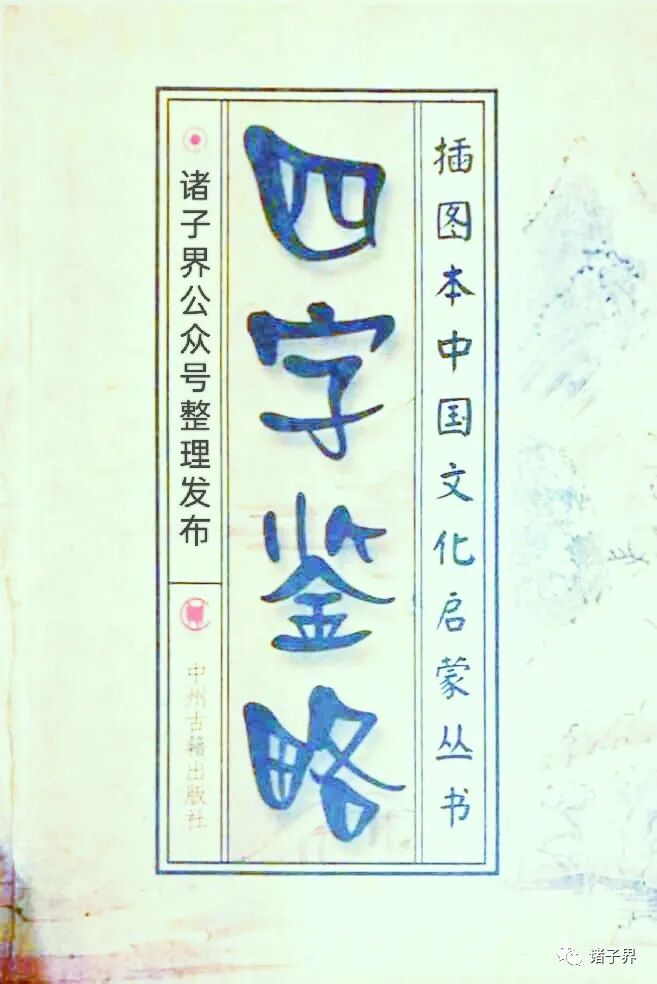 插图本中国文化启蒙丛书
四字鉴略
诸子界公众号整理发布
中州古籍出版社
诸子界